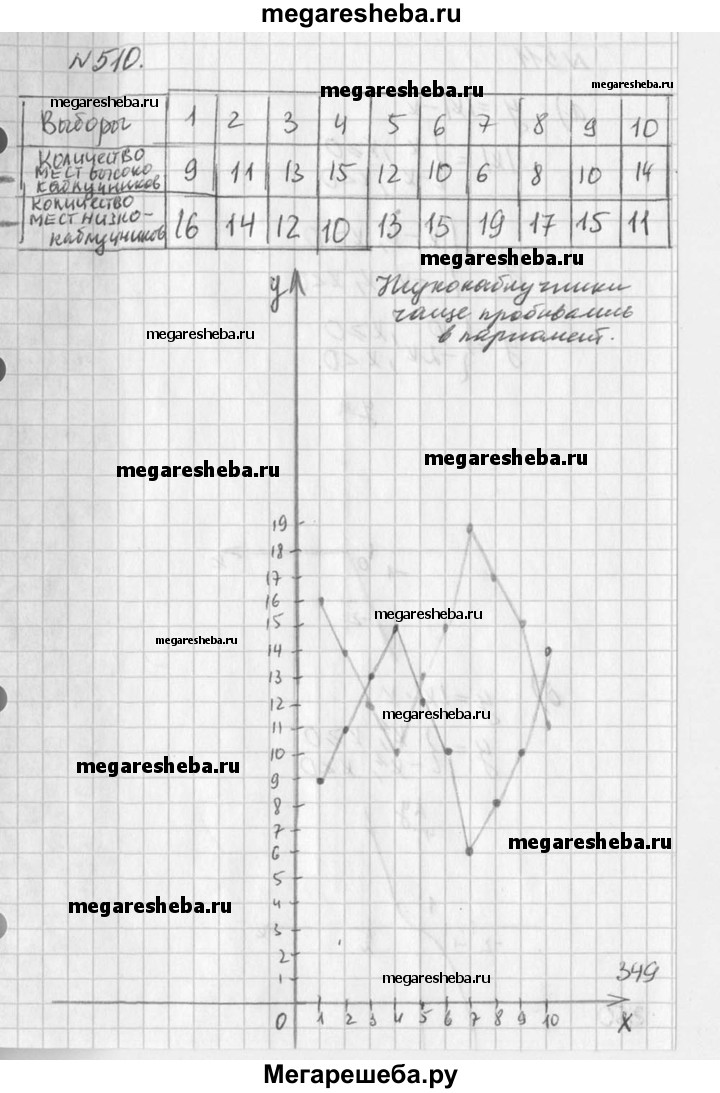 megaresheba.ru
№510.
megaresheba.ru
megaresheba.ru
megaresheba.ru
Выборы 1 2 3 4 5 6 7 8 9 10
Количество мест высоко каблучников 9 11 13 15 12 10 6 8 10 14
Количество мест низко- каблучников 16 14 12 10 13 15 19 17 15 11
megaresheba.ru
y
чаще пробивались
в парламент.
megaresheba.ru
megaresheba.ru
megaresheba.ru
19
18
17
16
megaresheba.ru
15
megaresheba.ru
14
13
12
megaresheba.ru
11
10
megaresheba.ru
9
8
7
megaresheba.ru
6
5
megaresheba.ru
4
3
2
349
1
megaresheba.ru
0 1 2 3 4 5 6 7 8 9 10 x
Мегарешеба.ру